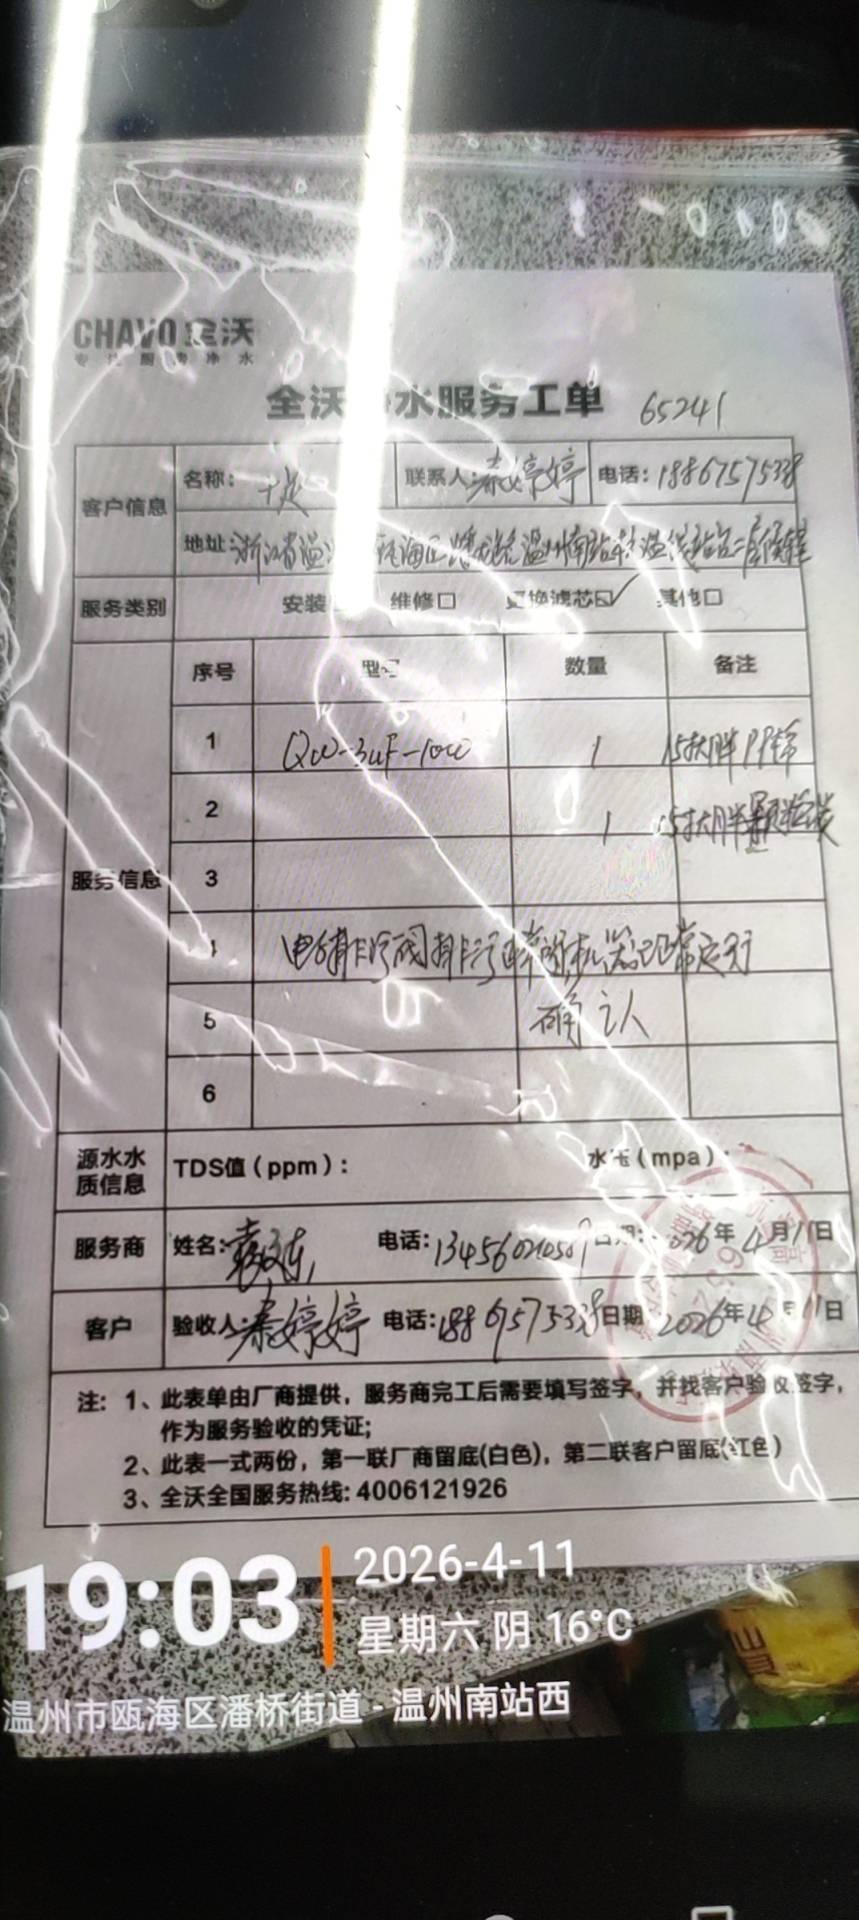 CHAVO 全沃
专注厨房净水
全沃净水服务工单 65241
客户信息 名称: 联系人: 秦婷婷 电话: 18867575338
地址: 浙江省温 瓯海区 温州南站 二层候车
服务类别 安装 维修☐ 更换滤芯☑ 其他☐
服务信息 序号 型号 数量 备注
1 QW-3UF-100 1 15寸大胖PP棉
2 1 15寸大胖颗粒炭
3
4 电磁排污阀排污 机器正常运行
5 确认
6
源水水质信息 TDS值(ppm): 水压(mpa):
服务商 姓名: 电话: 13456020509 日期: 2026年4月11日
客户 验收人: 秦婷婷 电话: 18867575338 日期 2026年4月11日
注: 1、此表单由厂商提供，服务商完工后需要填写签字，并找客户验收签字，
作为服务验收的凭证;
2、此表一式两份，第一联厂商留底(白色)，第二联客户留底(红色)
3、全沃全国服务热线: 4006121926
19:03 2026-4-11
星期六 阴 16°C
温州市瓯海区潘桥街道 - 温州南站西